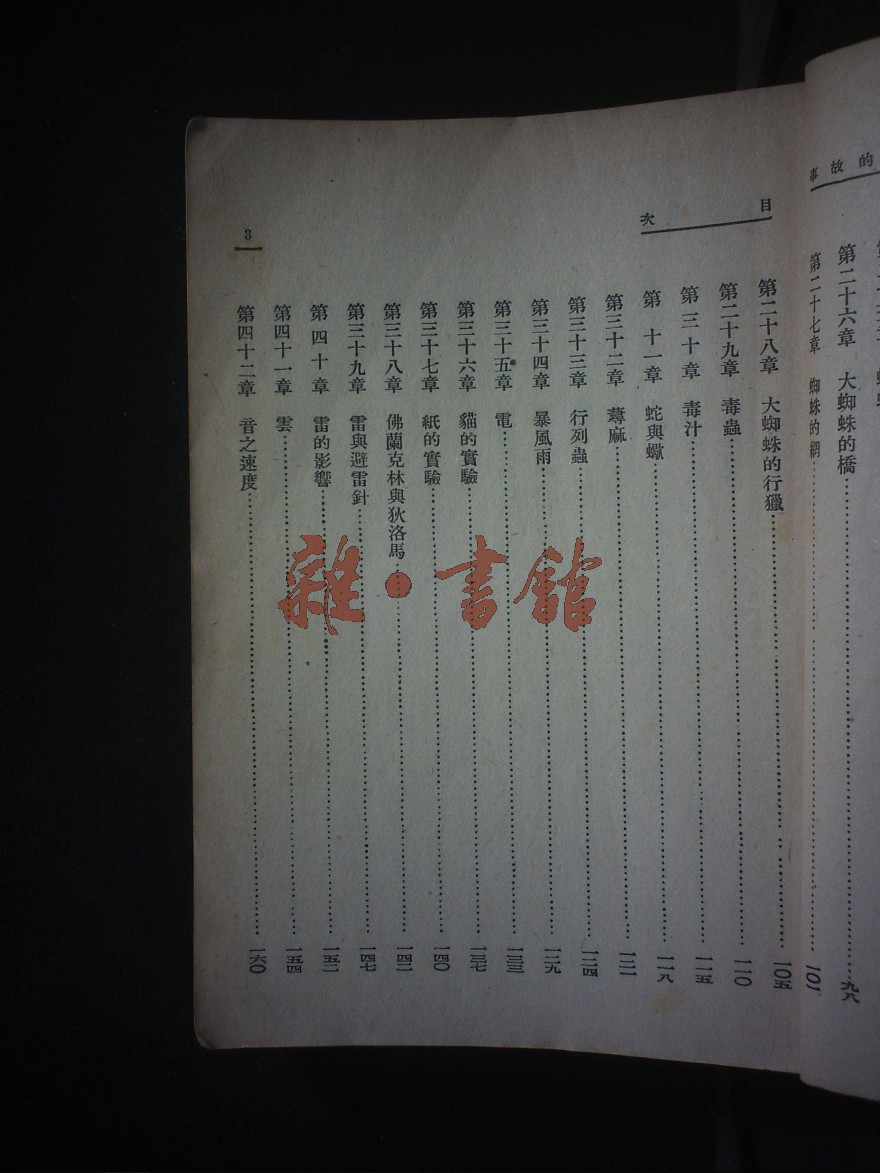 事故的
第二十六章 大蜘蛛的橋……九八
第二十七章 蜘蛛的網……一〇一
目次
第二十八章 大蜘蛛的行獵……一〇五
第二十九章 毒蟲……一一〇
第三十章 毒汁……一一五
第十一章 蛇與蠍……一一八
第三十二章 蕁麻……一二一
第三十三章 行列蟲……一二四
第三十四章 暴風雨……一二九
第三十五章 電……一三三
第三十六章 貓的實驗……一三七
第三十七章 紙的實驗……一四〇
第三十八章 佛蘭克林與狄洛馬……一四二
第三十九章 雷與避雷針……一四七
第四十章 雷的影響……一五二
第四十一章 雲……一五四
第四十二章 音之速度……一六〇
3
雜·書館